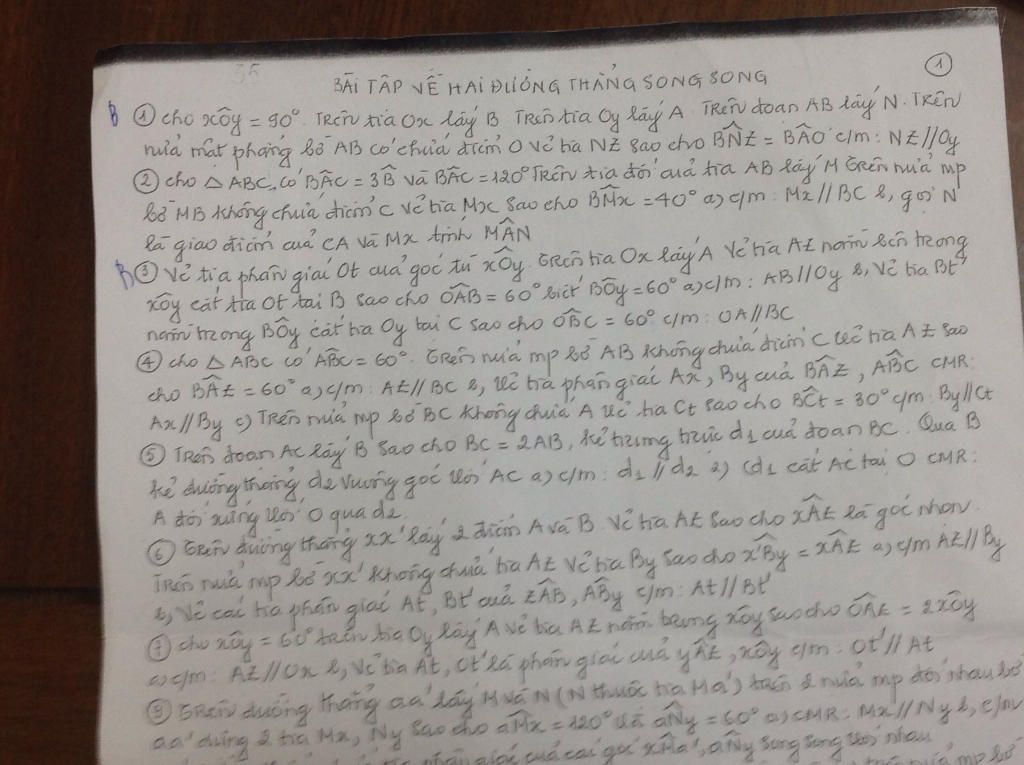 35
BÀI TẬP VỀ HAI ĐƯỜNG THẲNG SONG SONG
1
B ① cho xÔy = 90°. Trên tia Ox lấy B Trên tia Oy lấy A. Trên đoạn AB lấy N. Trên
nửa mặt phẳng bờ AB có chứa điểm O vẽ tia Nz sao cho BN̂z = BÂO c/m: Nz // Oy
② cho △ ABC, có BÂC = 3B̂ và BÂC = 120° Trên tia đối của tia AB lấy M trên nửa mp
bờ MB không chứa điểm C vẽ tia Mx sao cho BM̂x = 40° a) c/m: Mx // BC b, gọi N
là giao điểm của CA và Mx tính MÂN
B ③ Vẽ tia phân giác Ot của góc tù xÔy. Trên tia Ox lấy A Vẽ tia Az nằm bên trong
xÔy cắt tia Ot tại B sao cho OÂB = 60° biết BÔy = 60° a) c/m: AB // Oy b, Vẽ tia Bt'
nằm trong BÔy cắt tia Oy tại C sao cho OB̂C = 60° c/m: OA // BC
④ cho △ ABC có AB̂C = 60°. Trên nửa mp bờ AB không chứa điểm C vẽ tia Az sao
cho BÂz = 60° a) c/m: Az // BC b, Vẽ tia phân giác Ax, By của BÂz, AB̂C CMR:
Ax // By c) Trên nửa mp bờ BC không chứa A vẽ tia Ct sao cho BĈt = 30° c/m: By // Ct
⑤ Trên đoạn AC lấy B sao cho BC = 2AB, kẻ trung trực d1 của đoạn BC. Qua B
kẻ đường thẳng d2 vuông góc với AC a) c/m: d1 // d2 2) (d1 cắt AC tại O CMR:
A đối xứng với O qua d2
⑥ Trên đường thẳng xx' lấy 2 điểm A và B. Vẽ tia Az sao cho xÂz là góc nhọn.
Trên nửa mp bờ xx' không chứa tia Az vẽ tia By sao cho x'B̂y = xÂz a) c/m Az // By
b, Vẽ các tia phân giác At, Bt' của zÂB, AB̂y c/m: At // Bt'
⑦ cho xÔy = 60° trên tia Oy lấy A vẽ tia Az nằm trong xÔy sao cho OÂz = 2xÔy
a) c/m: Az // Ox b, Vẽ tia At, Ot' là phân giác của yÂz, xÔy c/m: Ot' // At
⑧ Trên đường thẳng aa' lấy M và N (N thuộc tia Ma') trên 2 nửa mp đối nhau bờ
aa' dựng 2 tia Mx, Ny sao cho aM̂x = 120° và aN̂y = 60° a) CMR: Mx // Ny b, c/m
phân giác của các góc xM̂a', aN̂y song song với nhau
nửa mp bờ